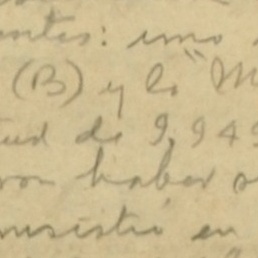 : uno
(B) y lo "M
tud de 9,949
ron haber
nsistió en